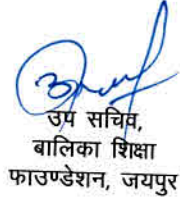 उप सचिव,
बालिका शिक्षा
फाउण्डेशन, जयपुर